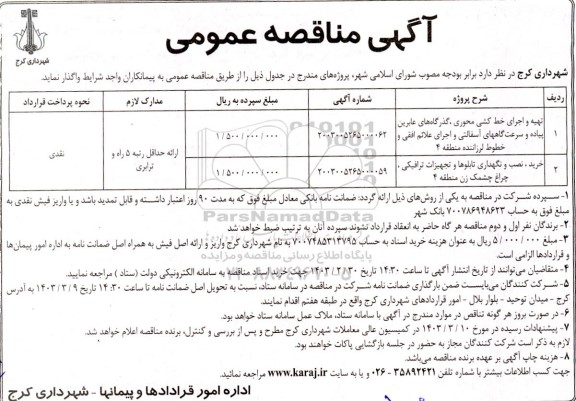 آگهی مناقصه عمومی
شهرداری کرج
شهرداری کرج در نظر دارد برابر بودجه مصوب شورای اسلامی شهر، پروژه‌های مندرج در جدول ذیل را از طریق مناقصه عمومی به پیمانکاران واجد شرایط واگذار نماید.
ردیف شرح پروژه شماره آگهی مبلغ سپرده به ریال مدارک لازم نحوه پرداخت قرارداد
۱ تهیه و اجرای خط کشی محوری ،گذرگاه‌های عابرین پیاده و سرعت‌گاههای آسفالتی و اجرای علائم افقی و خطوط لرزاننده منطقه ۴ ۲۰۰۳۰۰۵۲۶۵۰۰۰۰۶۲ ۱/۵۰۰/۰۰۰/۰۰۰ ارائه حداقل رتبه ۵ راه و ترابری نقدی
۲ خرید ، نصب و نگهداری تابلوها و تجهیزات ترافیکی ، چراغ چشمک زن منطقه ۴ ۲۰۰۳۰۰۵۲۶۵۰۰۰۰۵۹ ۱/۵۰۰/۰۰۰/۰۰۰
۱- سپرده شرکت در مناقصه به یکی از روش‌های ذیل ارائه گردد: ضمانت نامه بانکی معادل مبلغ فوق که به مدت ۹۰ روز اعتبار داشته و قابل تمدید باشد و یا واریز فیش نقدی به
مبلغ فوق به حساب ۷۰۰۷۸۶۹۴۸۶۲۳ بانک شهر
۲- برندگان نفر اول و دوم مناقصه هر گاه حاضر به انعقاد قرارداد نشوند سپرده آنان به ترتیب ضبط خواهد شد
۳- مبلغ ۵/۰۰۰/۰۰۰ ریال به عنوان هزینه خرید اسناد به حساب ۷۰۰۷۴۸۵۳۱۳۷۹۵ به نام شهرداری کرج واریز و ارائه اصل فیش به همراه اصل ضمانت نامه به اداره امور پیمان‌ها
و قراردادها الزامی است.
۴- متقاضیان می‌توانند از تاریخ انتشار آگهی تا ساعت ۱۴:۳۰ تاریخ ۱۴۰۳/۲/۳۰ جهت خرید اسناد مناقصه به سامانه الکترونیکی دولت (ستاد ) مراجعه نمایید.
۵- شرکت کنندگان می‌بایست ضمن بارگذاری ضمانت نامه شرکت در مناقصه در سامانه ستاد، نسبت به تحویل اصل ضمانت نامه تا ساعت ۱۴:۳۰ تاریخ ۱۴۰۳/۳/۹ به آدرس
کرج - میدان توحید - بلوار بلال - امور قراردادهای شهرداری کرج واقع در طبقه هفتم اقدام نمایند.
۶- در صورت بروز هر گونه تناقض در موارد مندرج در آگهی با سامانه ستاد، ملاک عمل سامانه ستاد خواهد بود.
۷- پیشنهادات رسیده در مورخ ۱۴۰۳/۳/۱۰ در کمیسیون عالی معاملات شهرداری کرج مطرح و پس از بررسی و کنترل، برنده مناقصه اعلام خواهد شد.
لازم به ذکر است شرکت کنندگان مجاز به حضور در جلسه بازگشایی پاکات هستند.
۸- هزینه چاپ آگهی بر عهده برنده مناقصه می‌باشد.
جهت کسب اطلاعات بیشتر با شماره تلفن ۳۵۸۹۲۴۲۱ - ۰۲۶ و یا به سایت www.karaj.ir مراجعه نمائید.
اداره امور قرادادها و پیمانها - شهرداری کرج
ParsNamadData
پایگاه اطلاع رسانی مناقصه و مزایده